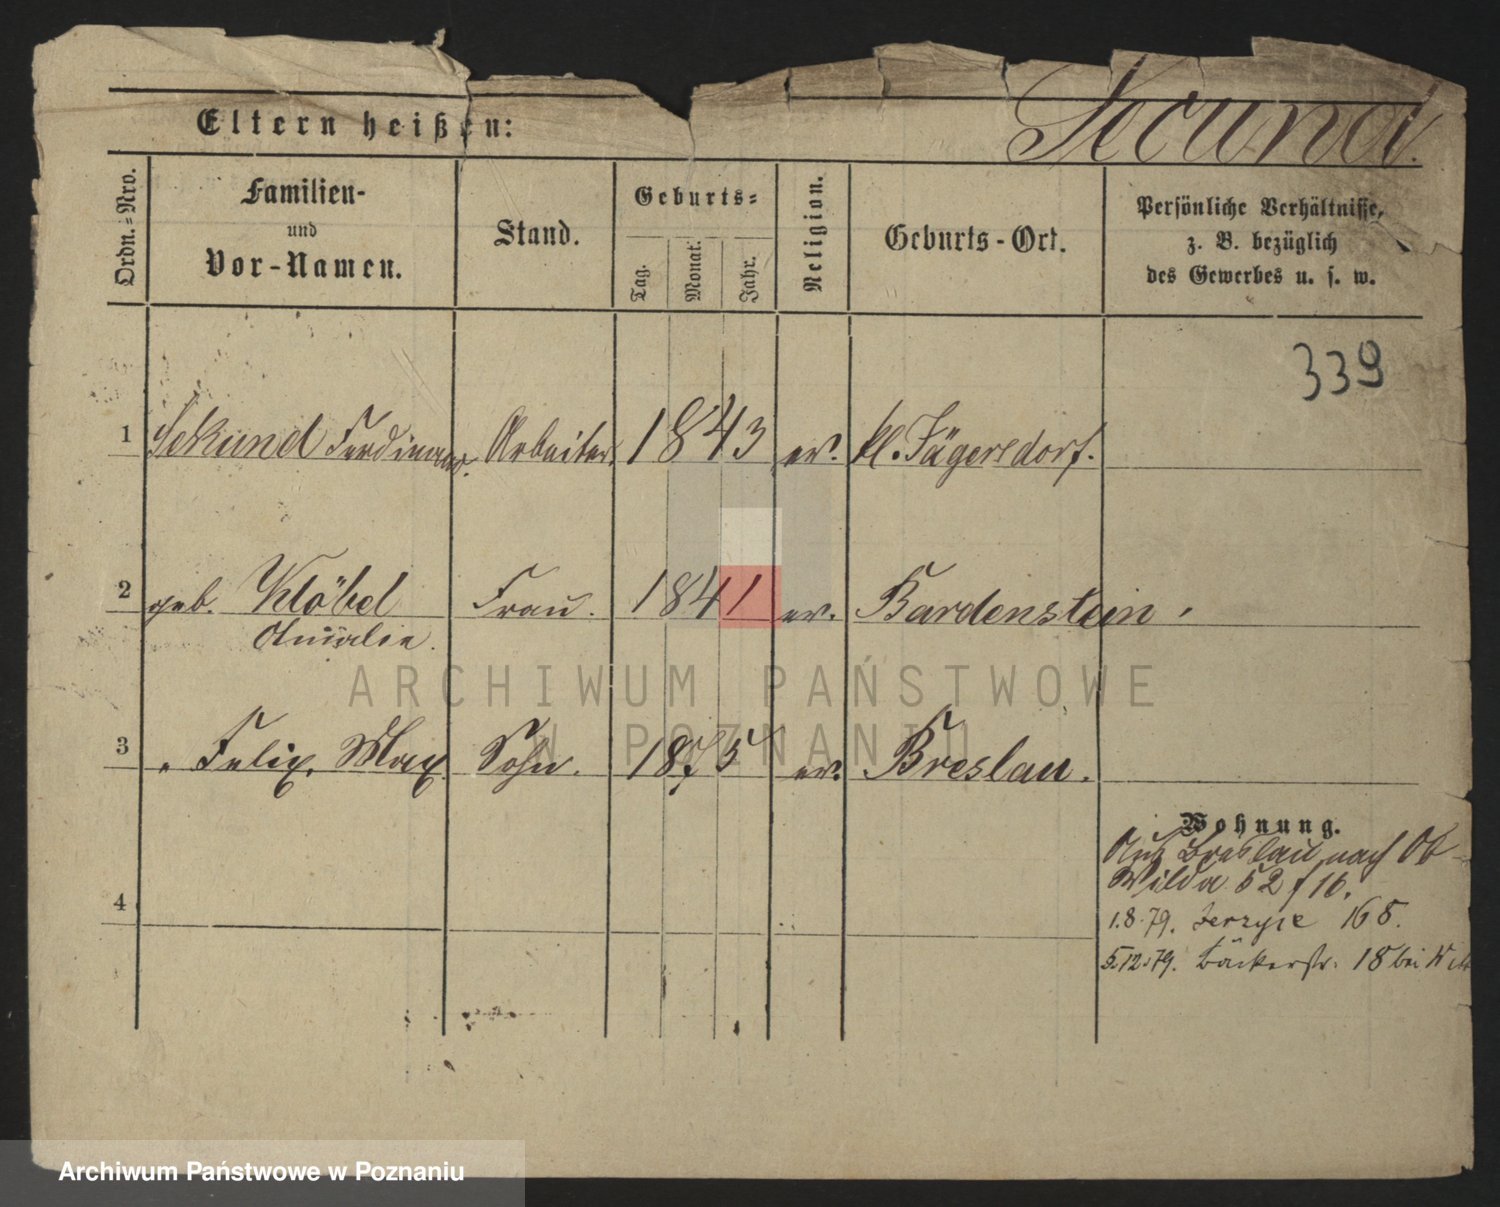 Secund.
Eltern heißen:
Ordn.=Nro.
Familien-
und
Vor-Namen.
Stand.
Geburts=
Tag.
Monat.
Jahr.
Religion.
Geburts-Ort.
Persönliche Verhältnisse,
z. B. bezüglich
des Gewerbes u. s. w.
339
1 Sekund Ferdinand. Arbeiter. 1843 ev. kl. Jägersdorf.
2 geb. Klöbel Frau. 1841 ev. Bardenstein,
Amalie.
ARCHIWUM PAŃSTWOWE
W POZNANIU
3 Felix, Max Sohn. 1875 ev. Breslau.
Wohnung.
Aus Breslau nach Ob
Wilda 52 f 16.
4
1.8.79. Jerzyce 165.
5.12.79. Bäckerstr. 18 bei
Archiwum Państwowe w Poznaniu